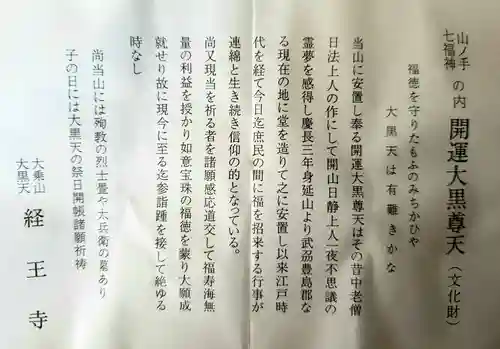 山ノ手
七福神 の内 開運大黒尊天（文化財）
福徳を守りたもふのみちかひや
大黒天は有難きかな
当山に安置し奉る開運大黒尊天はその昔中老僧
日法上人の作にして開山日静上人一夜不思議の
霊夢を感得し慶長三年身延山より武刕豊島郡な
る現在の地に堂を造りて之に安置し以来江戸時
代を経て今日迄庶民の間に福を招来する行事が
連綿と生き続き信仰の的となっている。
尚又現当を祈る者を諸願感応道交して福寿海無
量の利益を授かり如意宝珠の福徳を蒙り大願成
就せり故に現今に至る迄参詣踵を接して絶ゆる
時なし
尚当山には殉教の烈士畳や太兵衛の墓あり
子の日には大黒天の祭日開帳諸願祈祷
大乗山
大黒天 経王寺